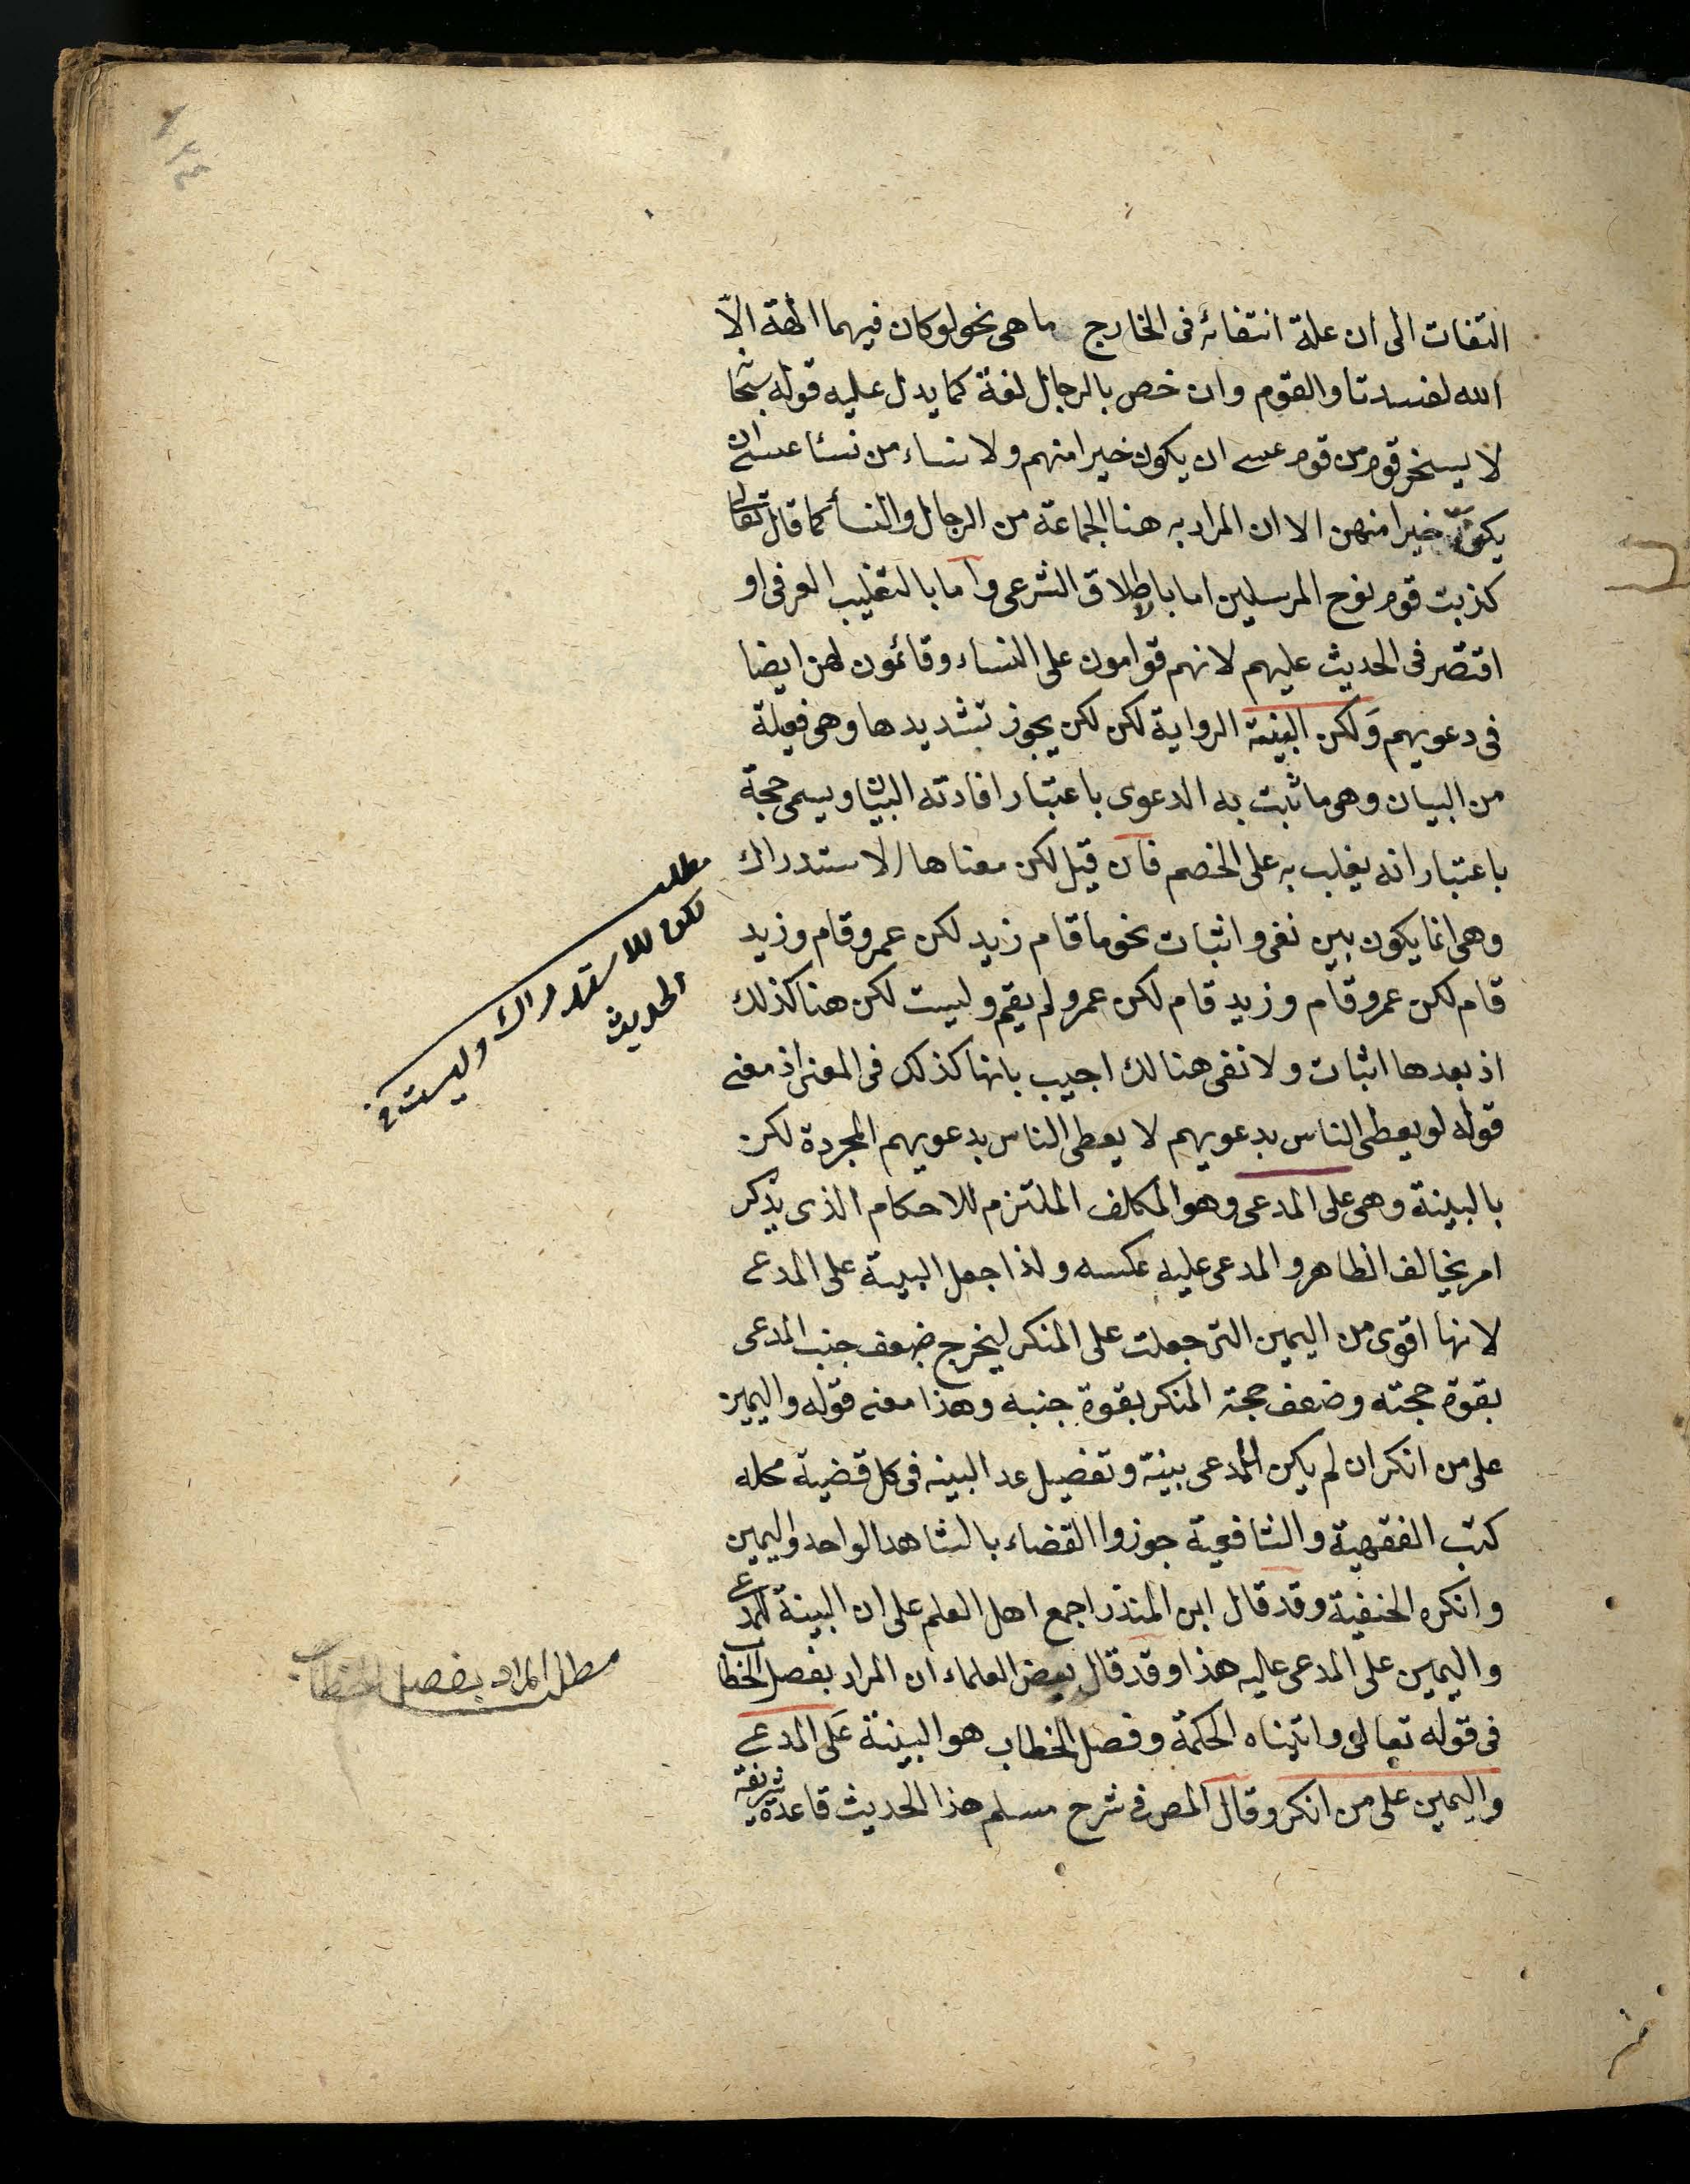 التفات الى ان علة انتفائه فى الخارج ما هى نحو لو كان فيهما الهة الاّ
الله لفسدتا والقوم وان خص بالرجال لغة كما يدل عليه قوله
لا يسخر قوم من قوم عسى ان يكون خيرا منهم ولا نساء من نسا عسى ان
يكنّ خيرا منهن الا ان المراد به هنا الجماعة من الرجال والنسأ كما قال تعالى
كذبت قوم نوح المرسلين اما باطلاق الشرعى واما بالتغليب العرفى او
اقتصر فى الحديث عليهم لانهم قوامون على النساء وقائمون لهن ايضا
فى دعويهم وَلكن البينة الرواية لكن لكن يجوز تشديدها وهى فعيلة
من البيان وهى ما ثبت به الدعوى باعتبار افادته البيان ويسمى حجة
باعتبار انه يغلب به على الخصم فان قيل لكن معناها الاستدراك
وهى انما يكون بين نفى واثبات نحو ما قام زيد لكن عمرو قام وزيد
قام لكن عمرو قام وزيد قام لكن عمرو لم يقم وليست لكن هنا كذلك
اذ بعدها اثبات ولا نفى هنالك اجيب بانها كذلك فى المعنى اذ معنى
قوله لو يعطى الناس بدعويهم لا يعطى الناس بدعويهم المجردة لكن
بالبينة وهى على المدعى وهو المكلف الملتزم للاحكام الذى يذكر
امر يخالف الظاهر والمدعى عليه عكسه ولذا جعل البينة على المدعى
لانها اقوى من اليمين التى جعلت على المنكر ليخرج ضعف جنب المدعى
بقوة حجته وضعف حجة المنكر بقوة جنبه وهذا معنى قوله واليمين
على من انكر ان لم يكن للمدعى بينة وتفصيل عد البينه فى كل قضية محله
كتب الفقهية والشافعية جوزوا القضاء بالشاهد الواحد واليمين
وانكره الحنفية وقد قال ابن المنذر اجمع اهل العلم على ان البينة للمدعى
واليمين على المدعى عليه هذا وقد قال بعض العلماء ان المراد بفصل الخطاب
فى قوله تعالى واتيناه الحكمة وفصل الخطاب هو البينة عَلى المدعى
واليمين على من انكر وقال المص فى شرح مسلم هذا الحديث قاعدة شريفة
مطلب
لكن للاستدراك وليست فى
الحديث
مطلب المراد بفصل الخطاب